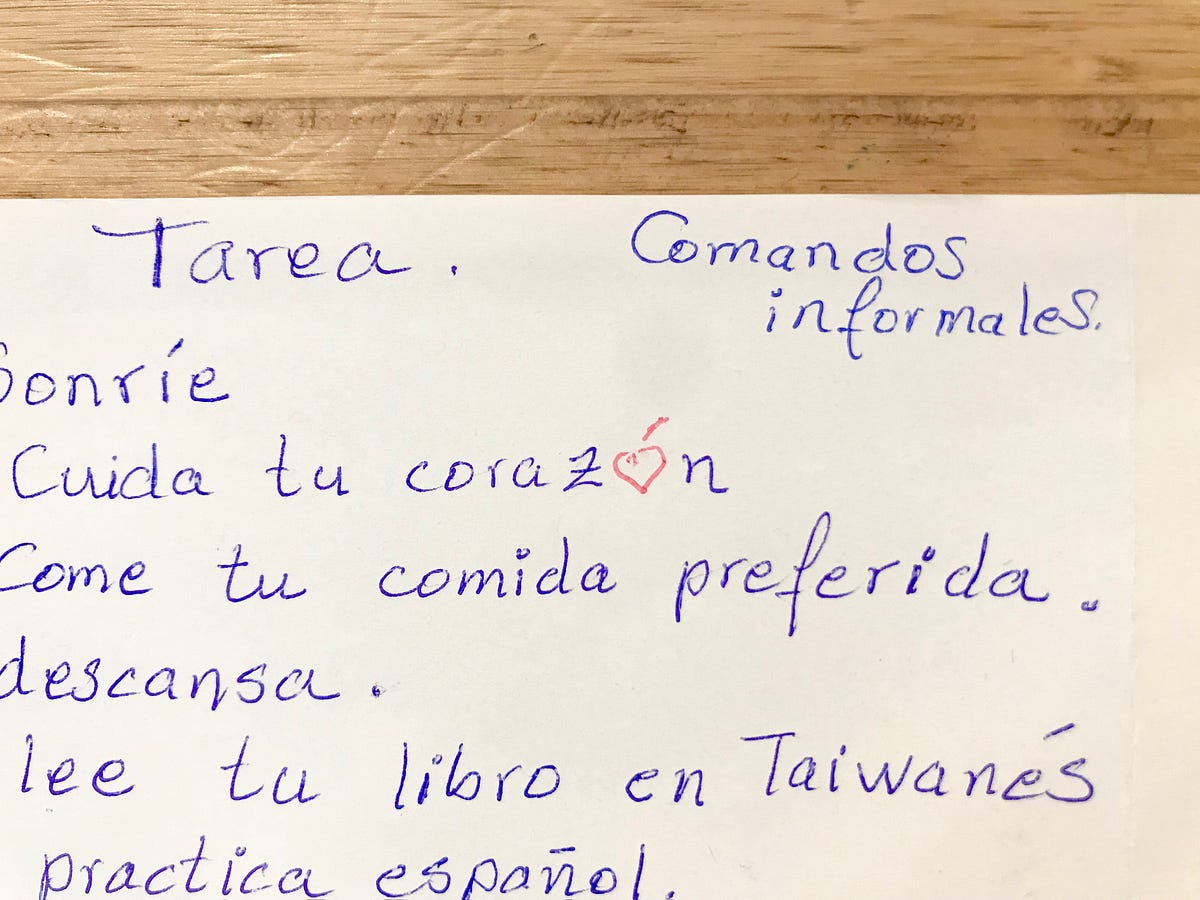 Tarea. Comandos
informales.
Sonríe
Cuida tu corazón
Come tu comida preferida.
descansa.
lee tu libro en Taiwanés
practica español.